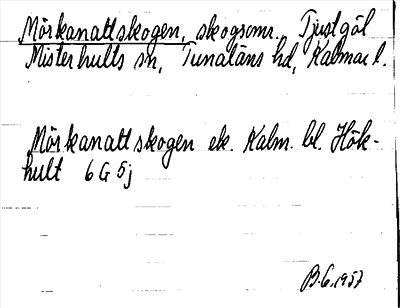 Mörkanattskogen, skogsomr. Tjustgöl
Misterhults sn, Tunaläns hd, Kalmar l.
Mörkanattskogen ek. Kalm. bl. Hök-
hult 6 G 5j
B.G. 1957